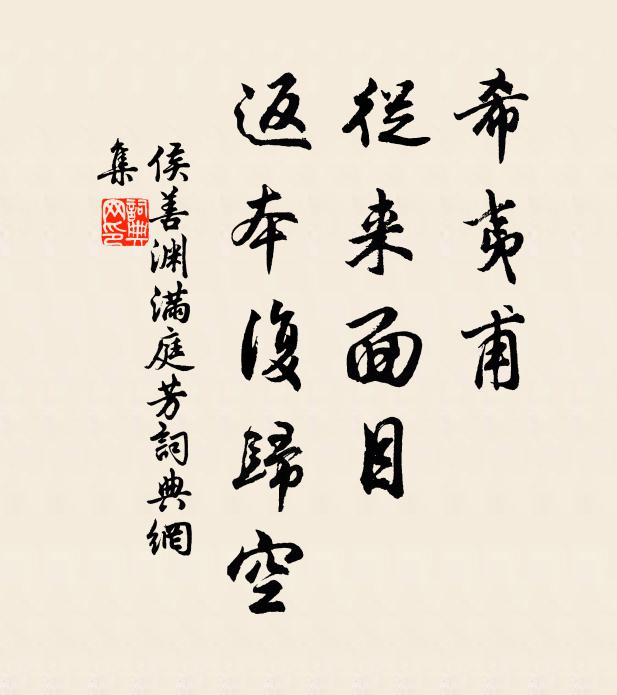 希夷甫
從来面目
返本復歸空
侯善渊满庭芳詞典網
集
詞典
网印